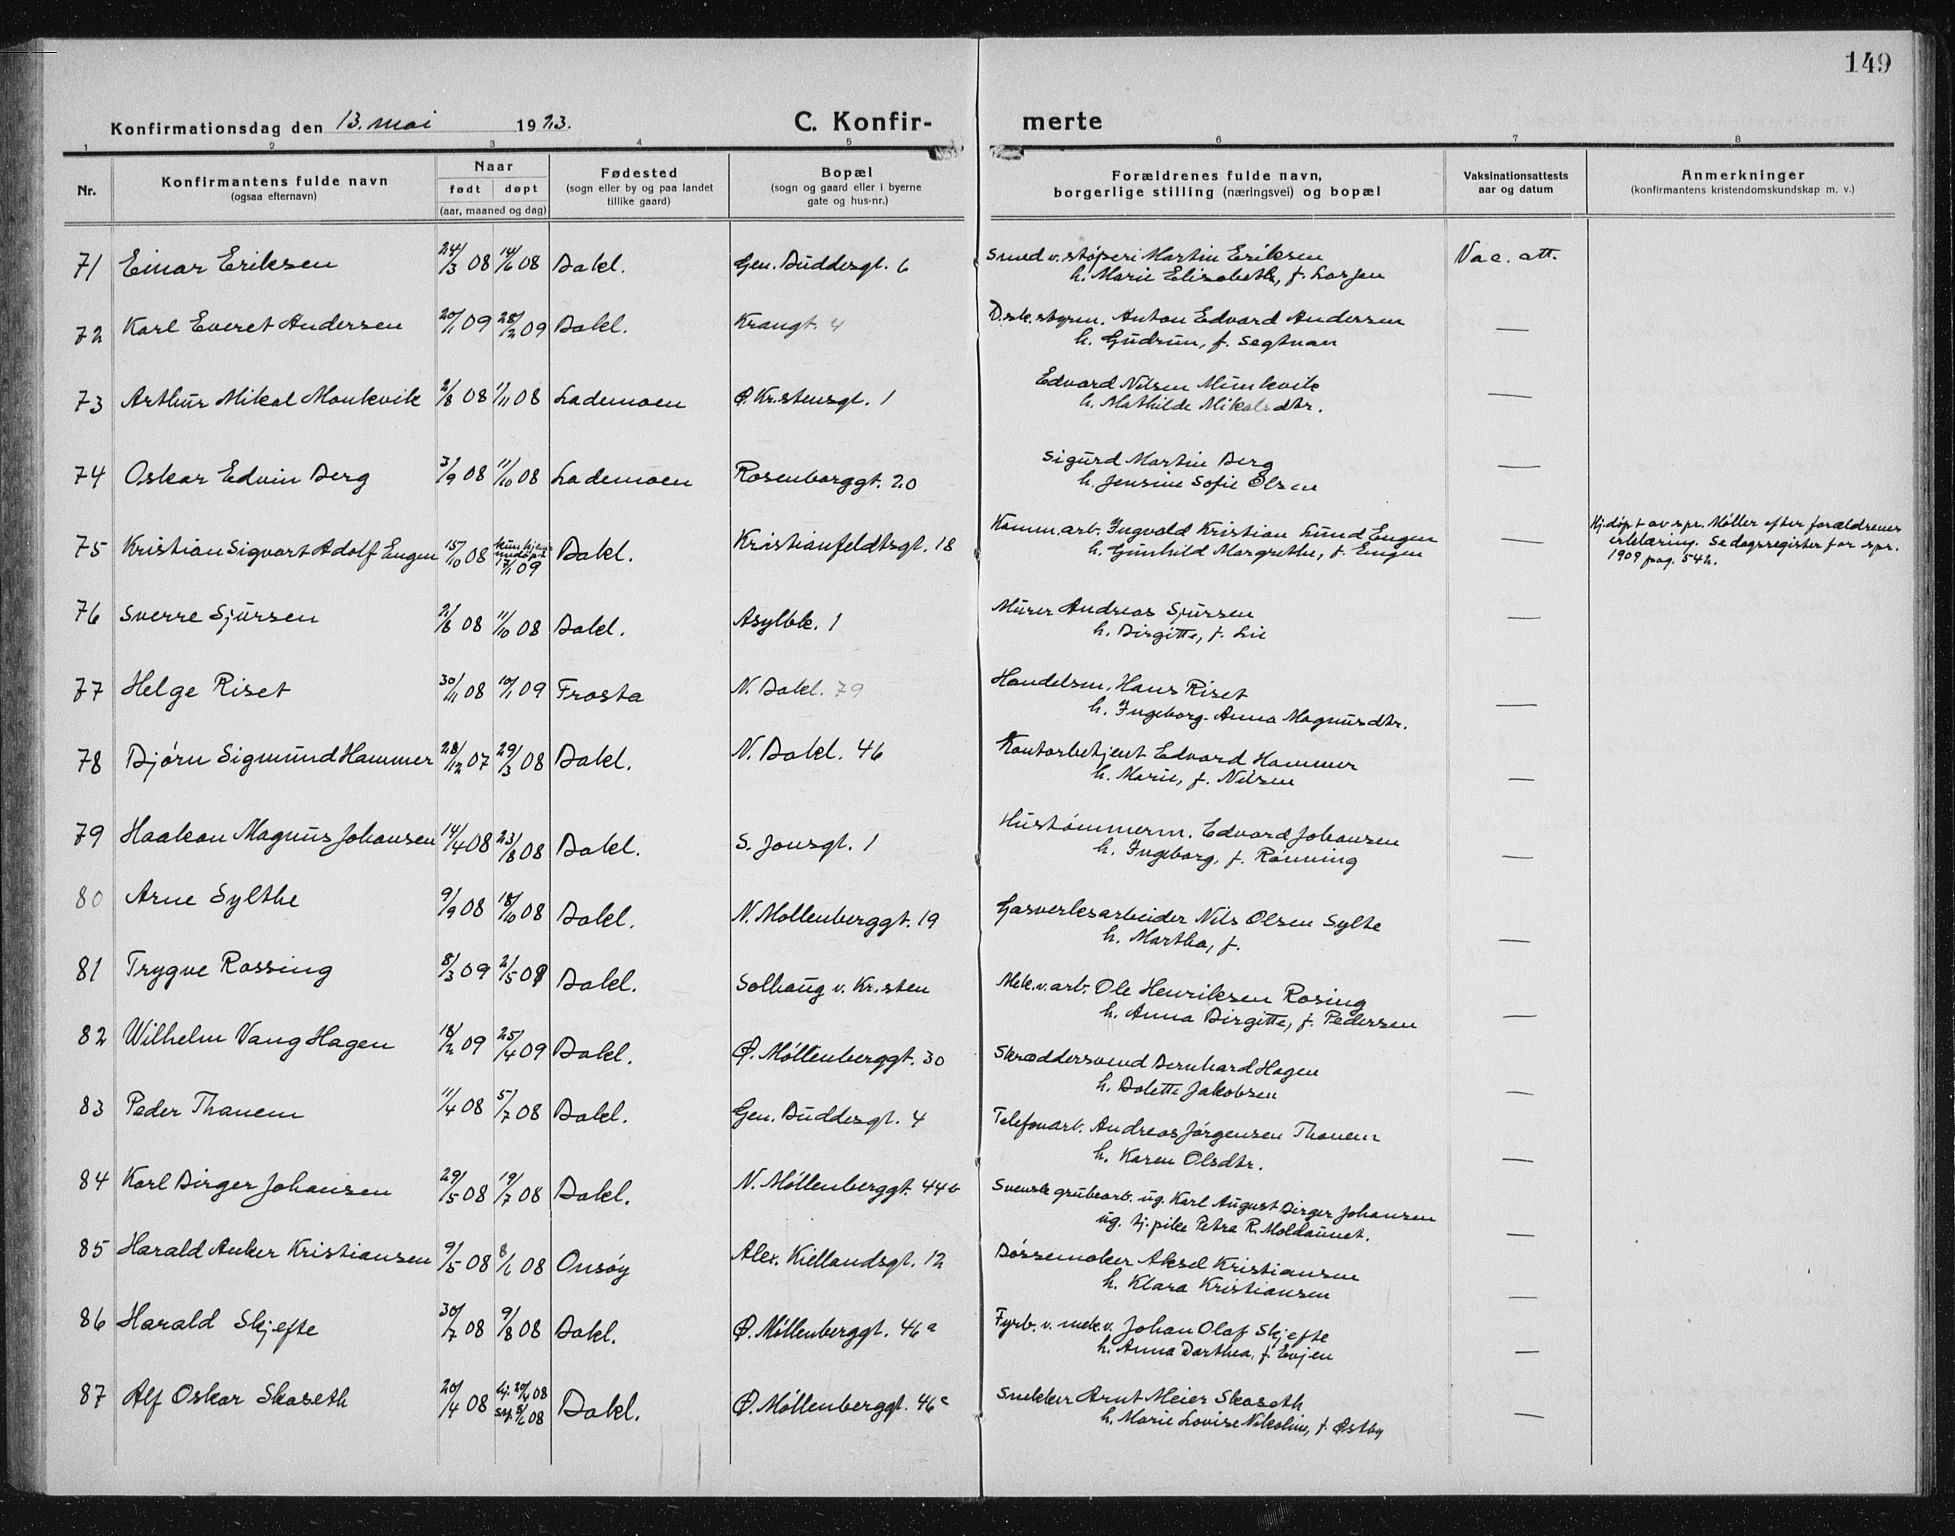 149
Konfirmationsdag den 13. mai 1923.
C. Konfir-merte
1 2 3 4 5 6 7 8
Nr.
Konfirmantens fulde navn
(ogsaa efternavn)
Naar
født døpt
(aar, maaned og dag)
Fødested
(sogn eller by og paa landet
tillike gaard)
Bopæl
(sogn og gaard eller i byerne
gate og hus-nr.)
Forældrenes fulde navn,
borgerlige stilling (næringsvei) og bopæl
Vaksinationsattests
aar og datum
Anmerkninger
(konfirmantens kristendomskundskap m. v.)
71 Einar Eriksen 24/3 08 14/6 08 Bakl. Gen. Buddesgt. 6 Smed v. støperi Martin Eriksen Vac. att.
h. Marie Elisabeth, f. Larsen
72 Karl Everet Andersen 20/1 09 28/2 09 Bakl. Krangt. 4 D.sk.styrm. Anton Edvard Andersen —
h. Gudrun, f. Segtnan
73 Arthur Mikal Monkvik 2/8 08 1/11 08 Lademoen Ø. Kristensgt. 1 Edvard Nilsen Munkvik —
h. Mathilde Mikalsdtr.
74 Oskar Edvin Berg 3/9 08 11/10 08 Lademoen Rosenborggt. 20 Sigurd Martin Berg —
h. Jensine Sofie Olsen
75 Kristian Sigvart Adolf Engen 15/10 08 kun hjemmedøpt 7/1 09 Bakl. Kristianfeldtsgt. 18 Komm.arb. Ingvald Kristian Lund Engen —
h. Gunhild Margrethe, f. Engen
Hj.døpt av spr. Møller efter forældrenes
erklæring. Se dagsregister for spr.
1909 pag. 54 h.
76 Sverre Sjursen 2/8 08 11/10 08 Bakl. Asylbk. 1 Murer Andreas Sjursen —
h. Birgitte, f. Lie
77 Helge Riset 30/11 08 10/1 09 Frosta N. Bakl. 79 Handelsm. Hans Riset —
h. Ingeborg Anna Magnusdtr.
78 Bjørn Sigmund Hammer 28/12 07 29/3 08 Bakl. N. Bakl. 46 Kontorbetjent Edvard Hammer —
h. Marie, f. Nilsen
79 Haakon Magnus Johansen 14/4 08 23/8 08 Bakl. S. Jonsgt. 1 Hustømmerm. Edvard Johansen —
h. Ingeborg, f. Rønning
80 Arne Sylthe 9/9 08 18/10 08 Bakl. N. Møllenberggt. 19 Gasverksarbeider Nils Olsen Sylte —
h. Martha, f.
81 Trygve Rossing 8/3 09 2/5 09 Bakl. Solhaug v. Kr.sten Mek.v.arb. Ole Henriksen Rosing —
h. Anna Birgitte, f. Pedersen
82 Wilhelm Vang Hagen 18/2 09 25/4 09 Bakl. Ø. Møllenberggt. 30 Skræddersvend Bernhard Hagen —
h. Dolette Jakobsen
83 Peder Thanem 11/4 08 5/7 08 Bakl. Gen. Buddesgt. 4 Telefonarb. Andreas Jørgensen Thanem —
h. Karen Olsdtr.
84 Karl Birger Johansen 29/5 08 19/7 08 Bakl. N. Møllenberggt. 44 b Svensk grubearb. ug. Karl August Birger Johansen —
ug. tj.pike Petra R. Moldaunet.
85 Harald Anker Kristiansen 9/5 08 8/6 08 Onsøy Alex. Kiellandsgt. 12 Bøssemaker Aksel Kristiansen —
h. Klara Kristiansen
86 Harald Skjefte 30/7 08 9/8 08 Bakl. Ø. Møllenberggt. 46 a Fyrb. v. mek.v. Johan Olaf Skjefte —
h. Anna Darthea, f. Evjen
87 Alf Oskar Skaseth 20/4 08 hj. 20/4 08 Bakl. Ø. Møllenberggt. 46 c Snekker Arnt Meier Skaseth —
h. Marie Lovise Nikoline, f. Østby